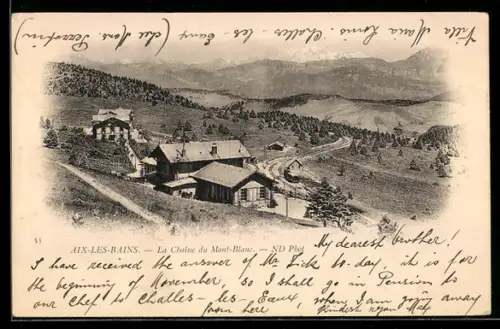 (Perrotin) (Sans) (chez) Villa Maria Louis (Maurice)
Challes - les - Eaux
53
AIX-LES-BAINS. — La Chaîne du Mont-Blanc. — ND Phot
My dearest brother!
I have received the answer of Mr. Lick to-day, it is for
the beginning of November, so I shall go in Pension to
our Chef to Challes-les-Eaux, when I am going away
from here Kindest regards Mary